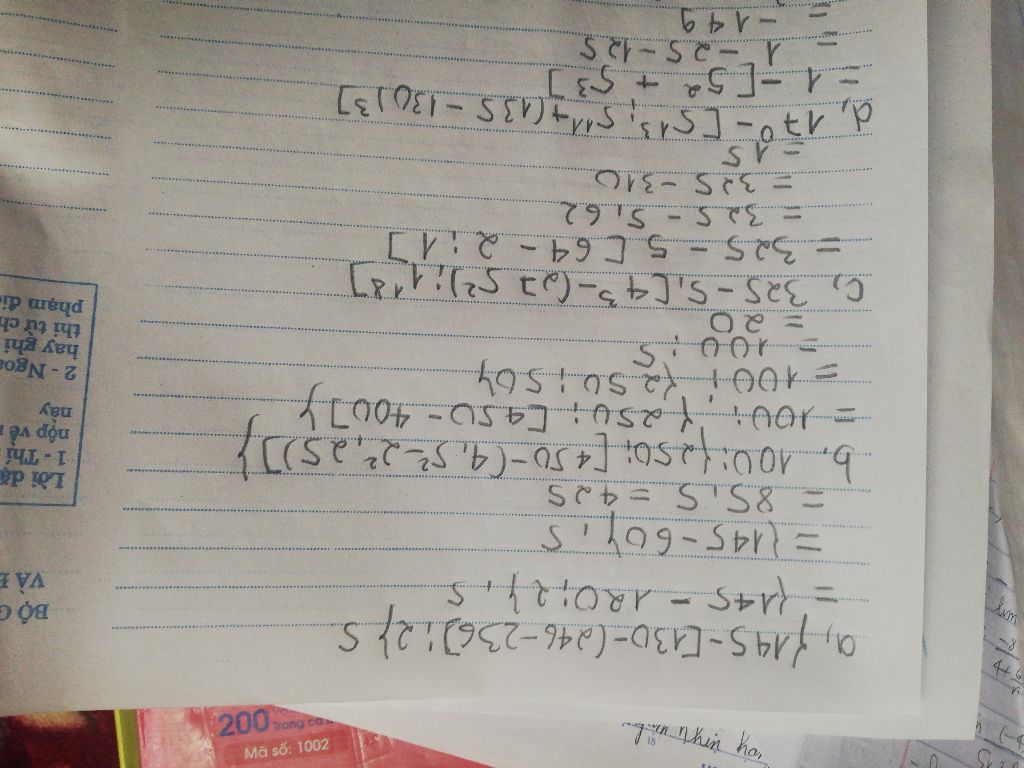 a, {145-[130-(246-236)]:2}.5
= {145 - 120:2}.5
= {145-60}.5
= 85.5 = 425
b, 100:{250:[450-(4.5²-2².25)]}
= 100: {250:[450-400]}
= 100: {250:50}
= 100:5
= 20
c, 325-5.[4³-(27 5²):1¹⁸]
= 325 - 5 [64 - 2:1]
= 325 - 5.62
= 325-310
= 15
d, 17⁰-[5¹³:5¹¹+(135-130)³]
= 1-[5² + 5³]
= 1-25-125
= -149
BỘ G
VÀ Đ
Lời dặ
1 - Thí
nộp về
này
2 - Ngoà
hay ghi
thi từ ch
phạm đi
200 Trang cả
Mã số: 1002
nhìn
lim